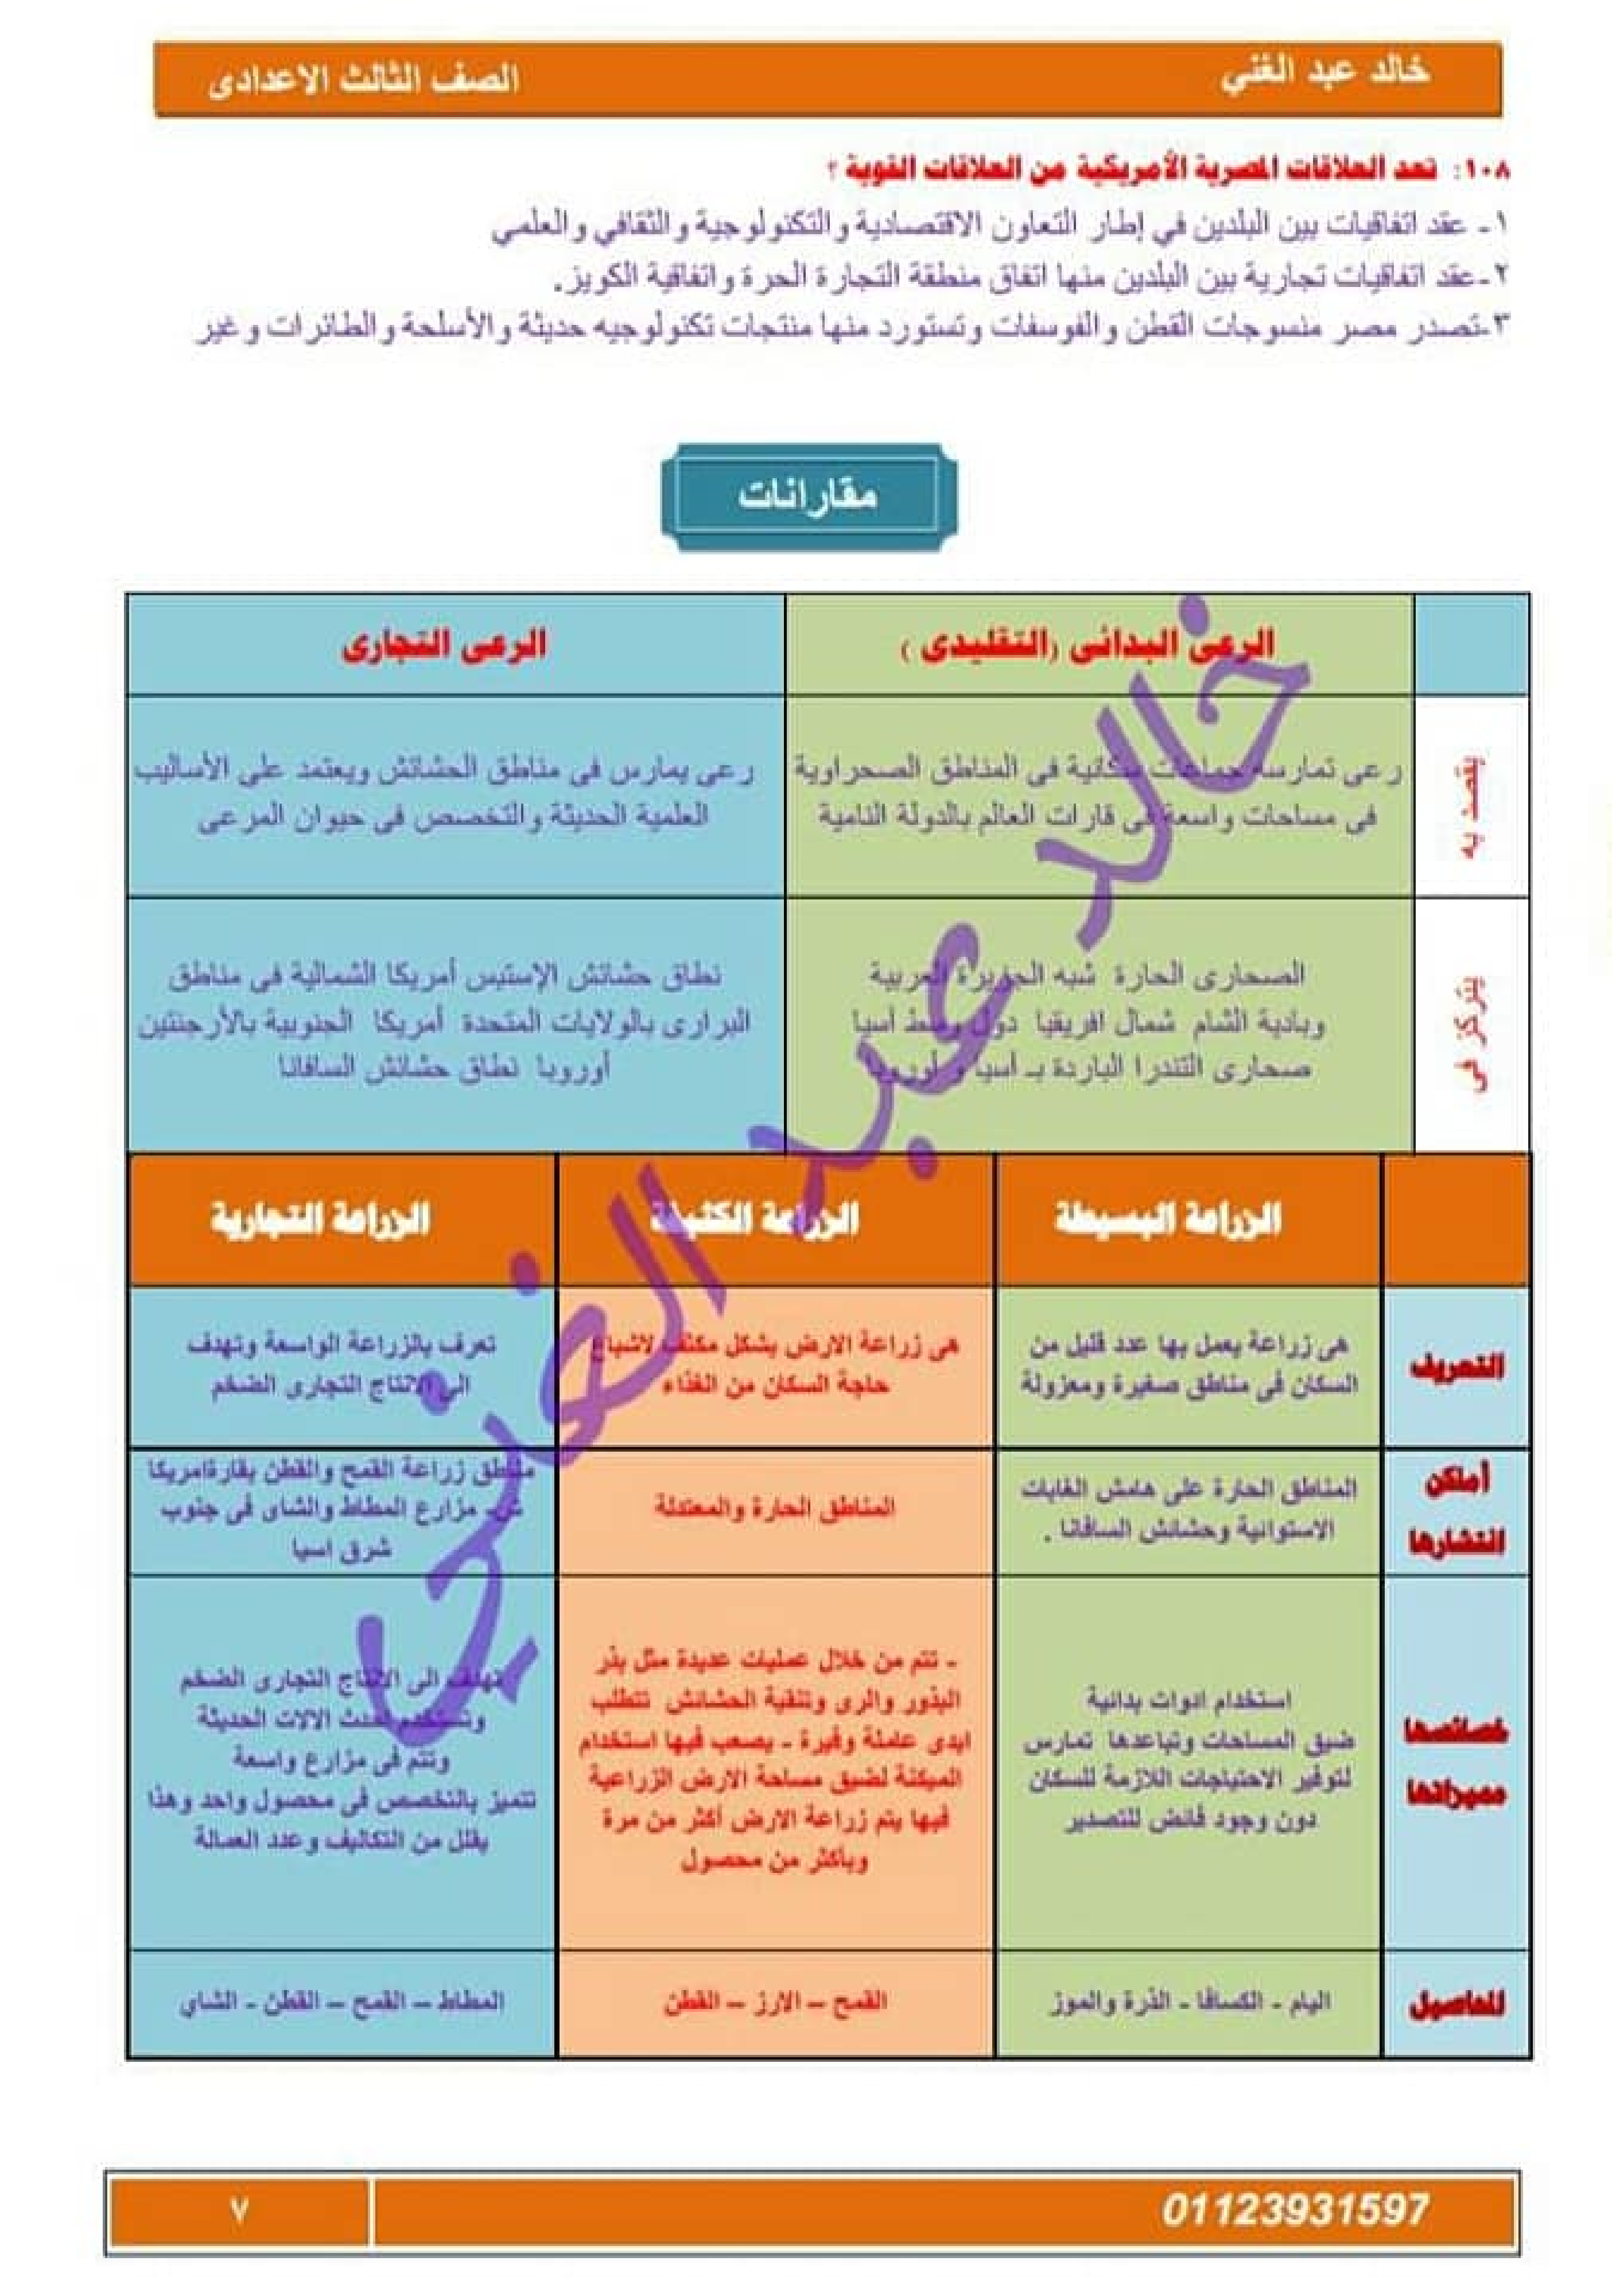 خالد عبد الغني
الصف الثالث الاعدادى
١٠٨: تعد العلاقات المصرية الأمريكية من العلاقات القوية ؟
١- عقد اتفاقيات بين البلدين في إطار التعاون الاقتصادية والتكنولوجية والثقافي والعلمي
٢-عقد اتفاقيات تجارية بين البلدين منها اتفاق منطقة التجارة الحرة واتفاقية الكويز.
٣-تصدر مصر منسوجات القطن والفوسفات وتستورد منها منتجات تكنولوجيه حديثة والأسلحة والطائرات وغير
مقارانات
الرعى البدائى (التقليدى )
الرعى التجارى
يقصد به
رعى تمارسه جماعات سكانية فى المناطق الصحراوية
فى مساحات واسعة فى قارات العالم بالدولة النامية
رعى يمارس فى مناطق الحشائش ويعتمد على الأساليب
العلمية الحديثة والتخصص فى حيوان المرعى
يتركز فى
الصحارى الحارة شبه الجزيرة العربية
وبادية الشام شمال افريقيا دول وسط أسيا
صحارى التندرا الباردة بـ أسيا و أوروبا
نطاق حشائش الإستبس أمريكا الشمالية فى مناطق
البرارى بالولايات المتحدة أمريكا الجنوبية بالأرجنتين
أوروبا نطاق حشائش السافانا
الزراعة البسيطة
الزراعة الكثيفة
الزراعة التجارية
التعريف
هى زراعة يعمل بها عدد قليل من
السكان فى مناطق صغيرة ومعزولة
هى زراعة الارض بشكل مكثف لاشباع
حاجة السكان من الغذاء
تعرف بالزراعة الواسعة وتهدف
الى الانتاج التجارى الضخم
أماكن
انتشارها
المناطق الحارة على هامش الغابات
الاستوائية وحشائش السافانا .
المناطق الحارة والمعتدلة
مناطق زراعة القمح والقطن بقارةامريكا
ش- مزارع المطاط والشاى فى جنوب
شرق اسيا
خصائصها
مميزاتها
استخدام ادوات بدائية
ضيق المساحات وتباعدها تمارس
لتوفير الاحتياجات اللازمة للسكان
دون وجود فائض للتصدير
- تتم من خلال عمليات عديدة مثل بذر
البذور والرى وتنقية الحشائش تتطلب
ايدى عاملة وفيرة - يصعب فيها استخدام
الميكنة لضيق مساحة الارض الزراعية
فيها يتم زراعة الارض أكثر من مرة
وبأكثر من محصول
تهدف الى الانتاج التجارى الضخم
وتستخدم احدث الالات الحديثة
وتتم فى مزارع واسعة
تتميز بالتخصص فى محصول واحد وهذا
يقلل من التكاليف وعدد العمالة
المحاصيل
اليام - الكسافا - الذرة والموز
القمح – الارز – القطن
المطاط – القمح – القطن - الشاي
خالد عبد الغني
01123931597
٧